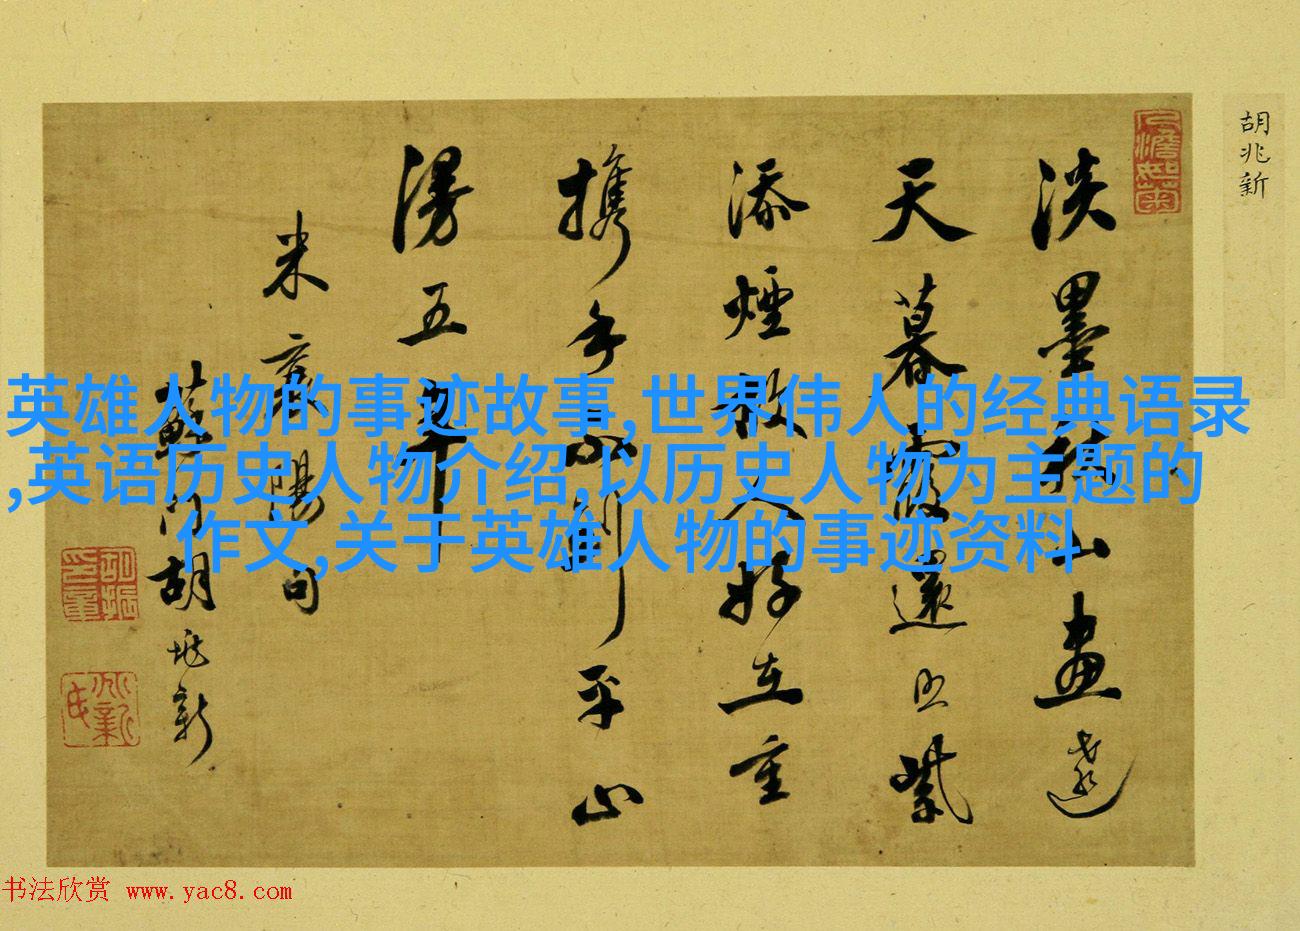 胡兆新
淡墨秋山畫遠
天暮霞還照紫
添煙故人好在重
携手不到平山
漫五年
米襄陽句
蘇門胡兆新
英雄人物的事迹故事,世界伟人的经典语录
,英语历史人物介绍,以历史人物为主题的
作文,关于英雄人物的事迹资料
书法欣赏 www.yac8.com